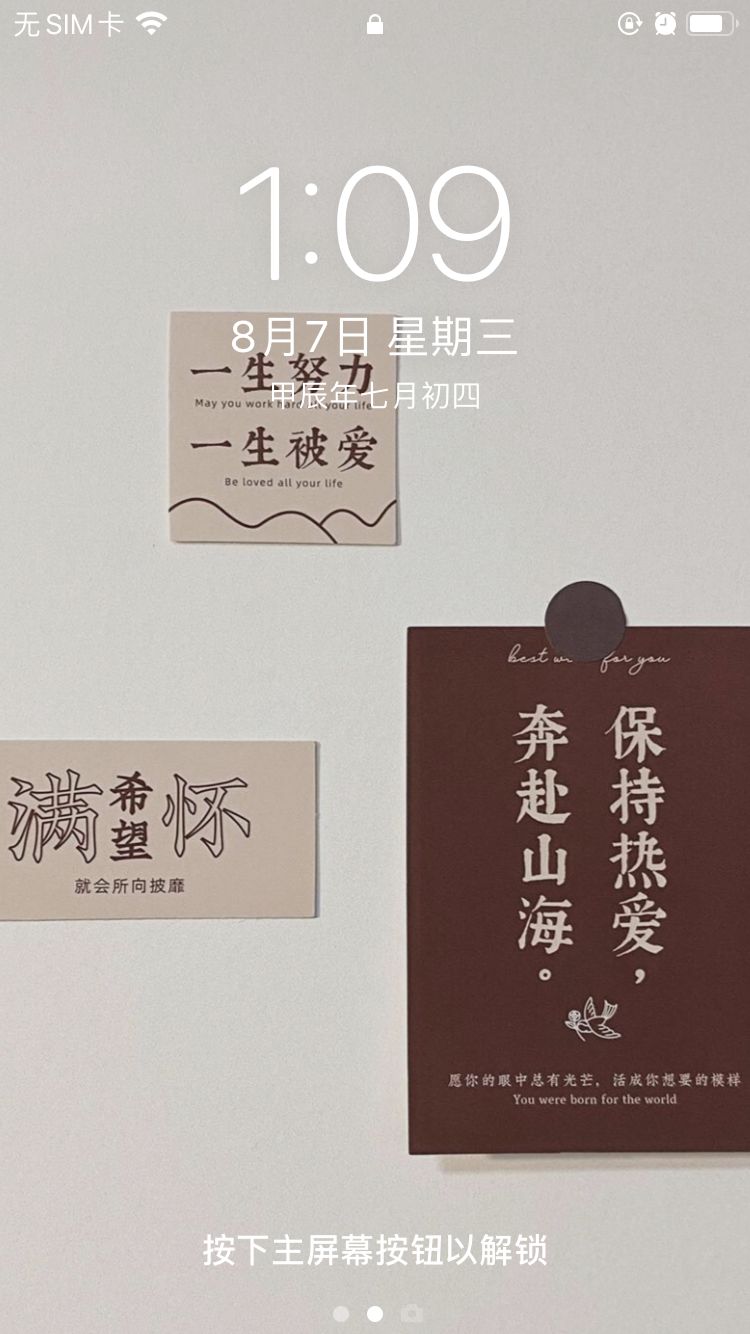 无SIM卡
1:09
8月7日 星期三
甲辰年七月初四
一生努力
May you work hard all your life
一生被爱
Be loved all your life
best wi for you
保持热爱，
奔赴山海。
满希望怀
就会所向披靡
愿你的眼中总有光芒，活成你想要的模样
You were born for the world
按下主屏幕按钮以解锁